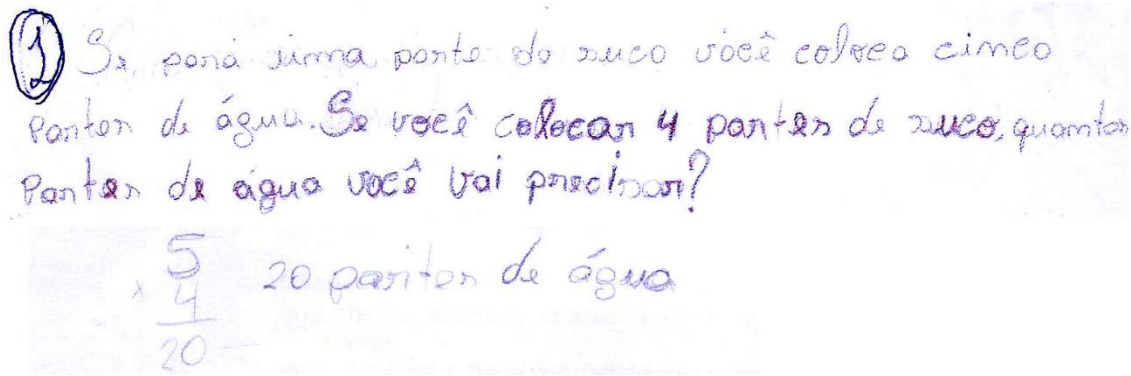 1 Se para uma parte do suco você coloca cinco
Partes de água. Se você colocar 4 partes de suco, quantas
Partes de água você vai precisar?
5
x 4
20
20 partes de água